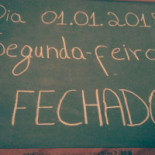 Dia 01.01.2018
Segunda-feira
FECHADO